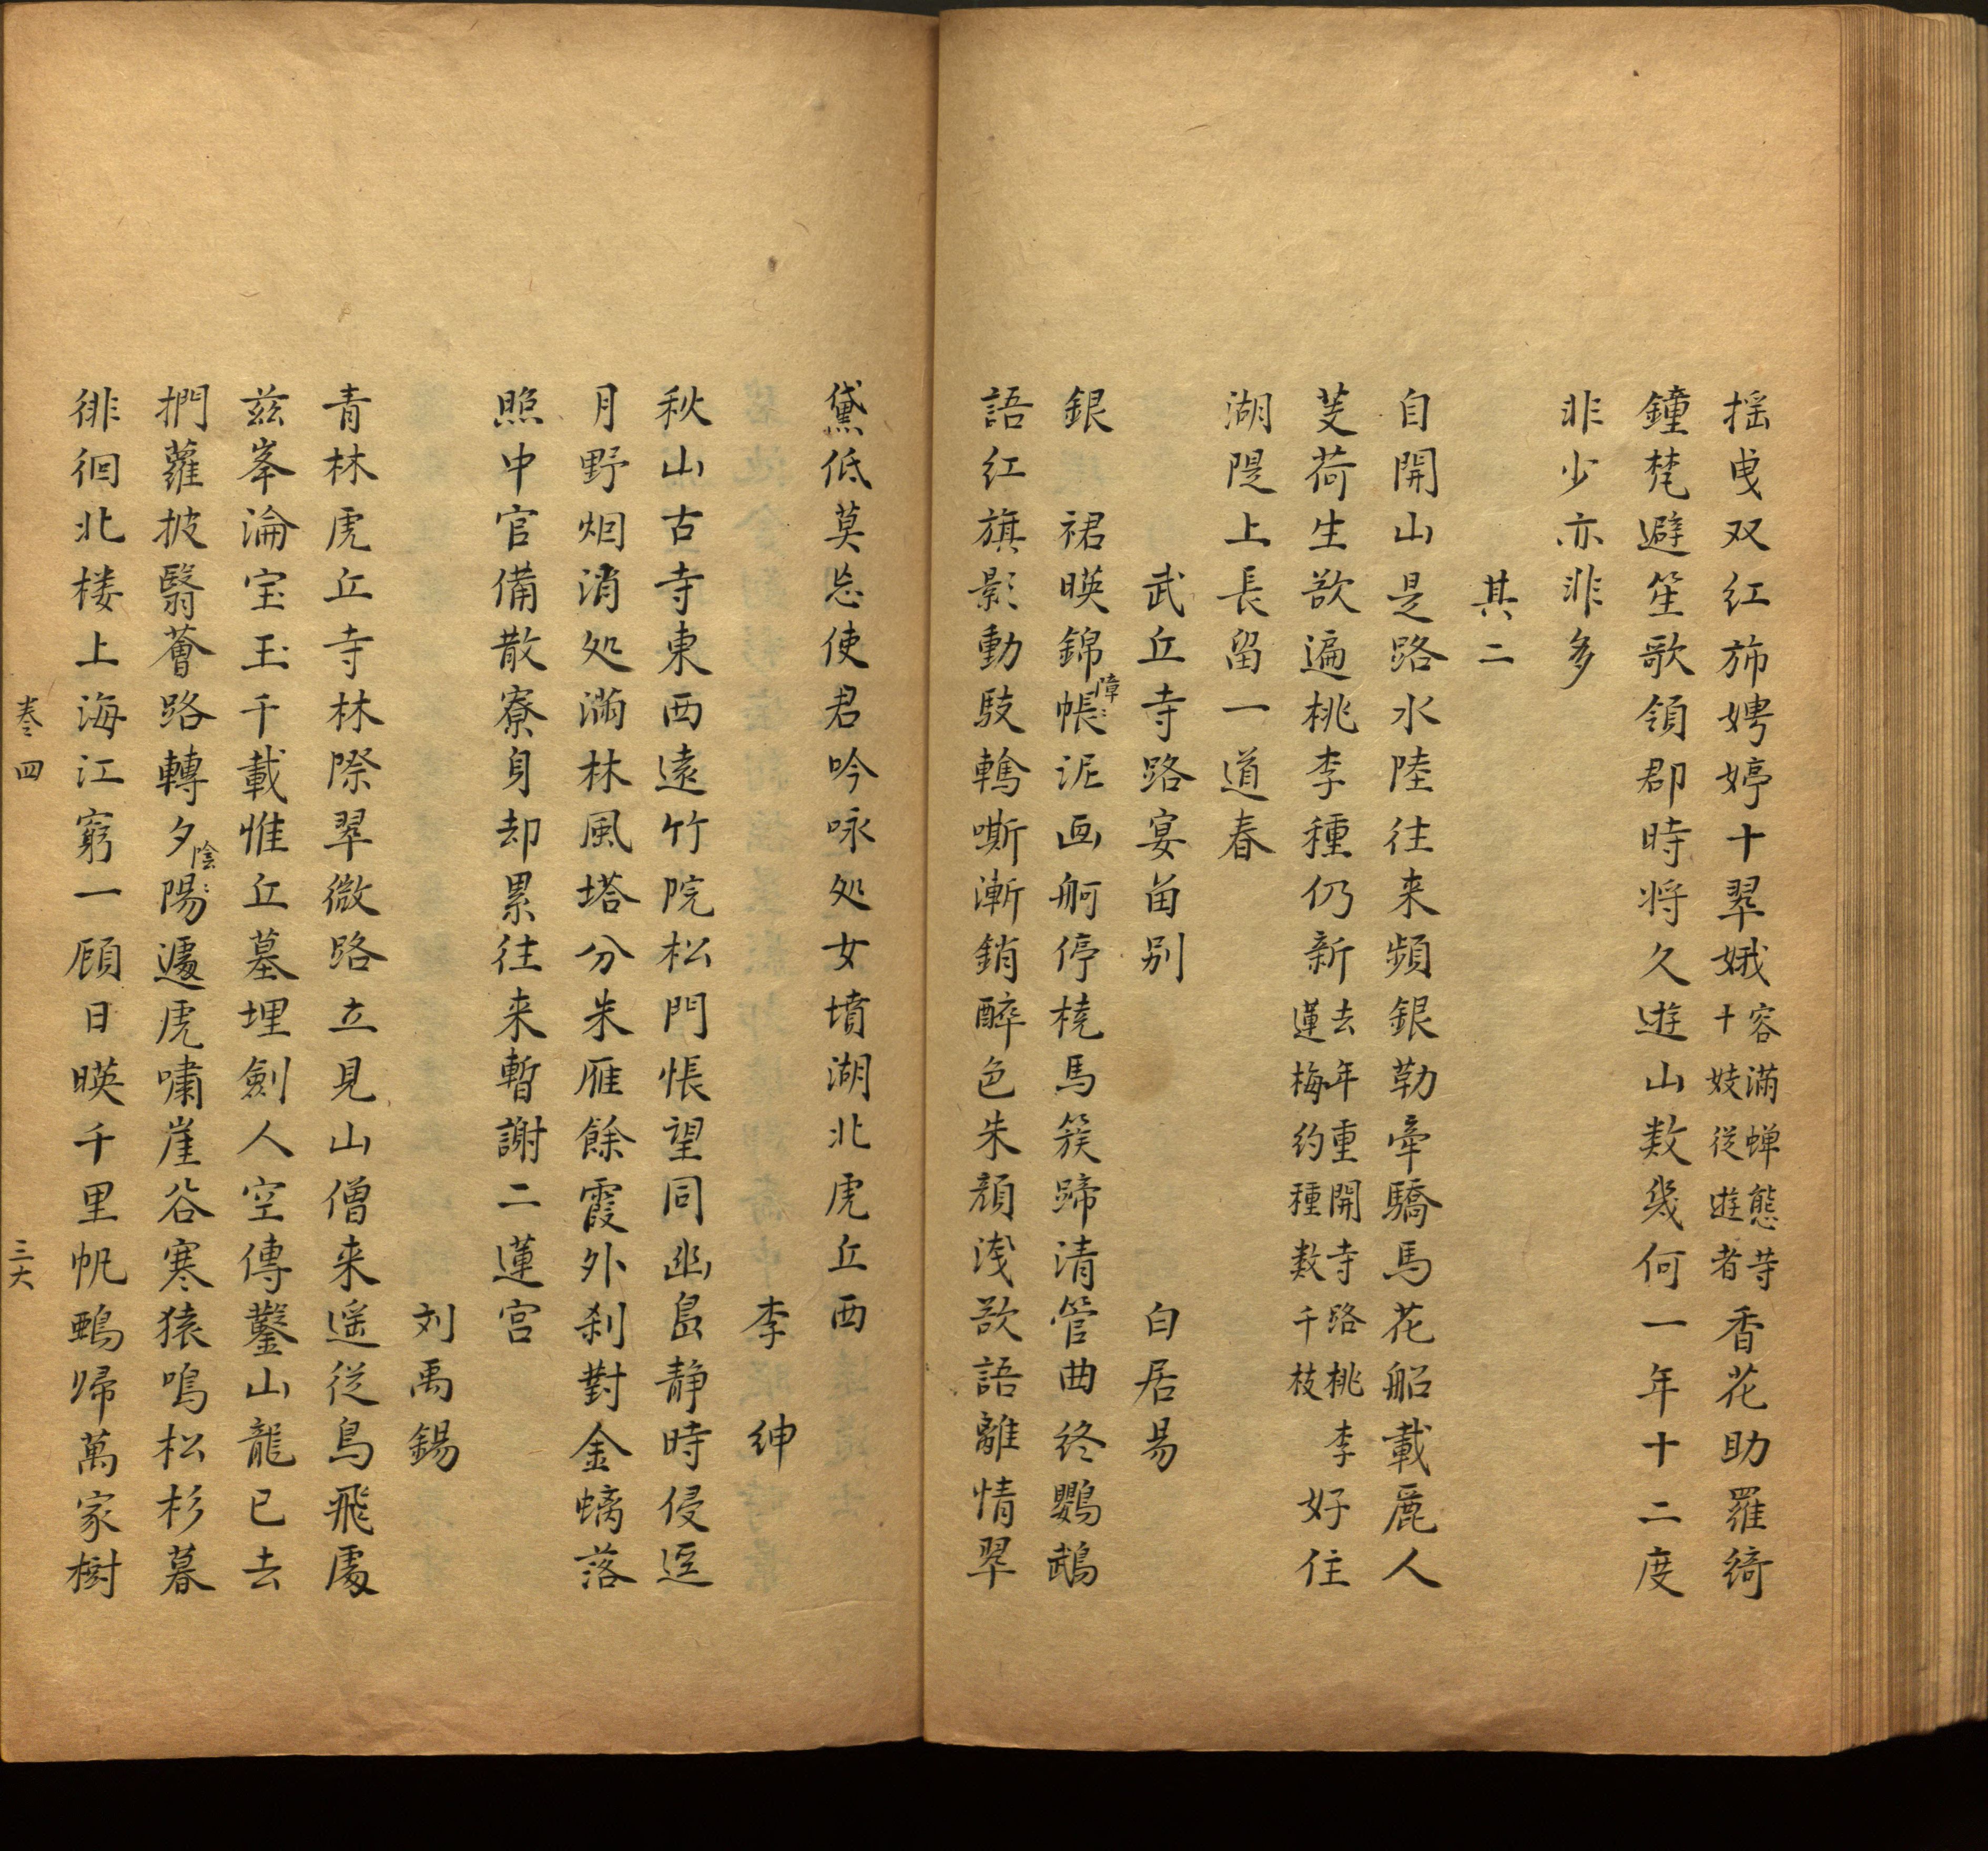 揺曳双红斾娉婷十翠娥容滿蝉態等十妓從遊者香花助羅綺
鐘梵避笙歌領郡時将久遊山数幾何一年十二度
非少亦非多
其二
自開山是路水陸往来頻銀勒牽驕馬花船載麗人
芰荷生欲遍桃李種仍新去年重開寺路桃李蓮梅約種数千枝好住
湖隄上長留一道春
武丘寺路宴留别　白居易
銀　裙暎錦帳障泥画舸停橈馬簇蹄清管曲终鸚鵡
語红旗影動駁鶷嘶漸銷醉色朱顔浅欲語離情翠
黛低莫忘使君吟咏处女墳湖北虎丘西
李　紳
秋山古寺東西遠竹院松門悵望同幽島静時侵逕
月野烟消处滿林風塔分朱雁餘霞外刹對金螭落
照中官備散寮身却累往来暫謝二蓮宫
刘禹錫
青林虎丘寺林際翠微路立見山僧来遥從鳥飛處
兹峯淪宝玉千載惟丘墓埋劍人空傳鑿山龍已去
捫蘿披翳薈路轉夕陽陰遽虎嘯崖谷寒猿鳴松杉暮
徘徊北楼上海江窮一顧日暎千里帆鵶歸萬家樹
巻四
三六